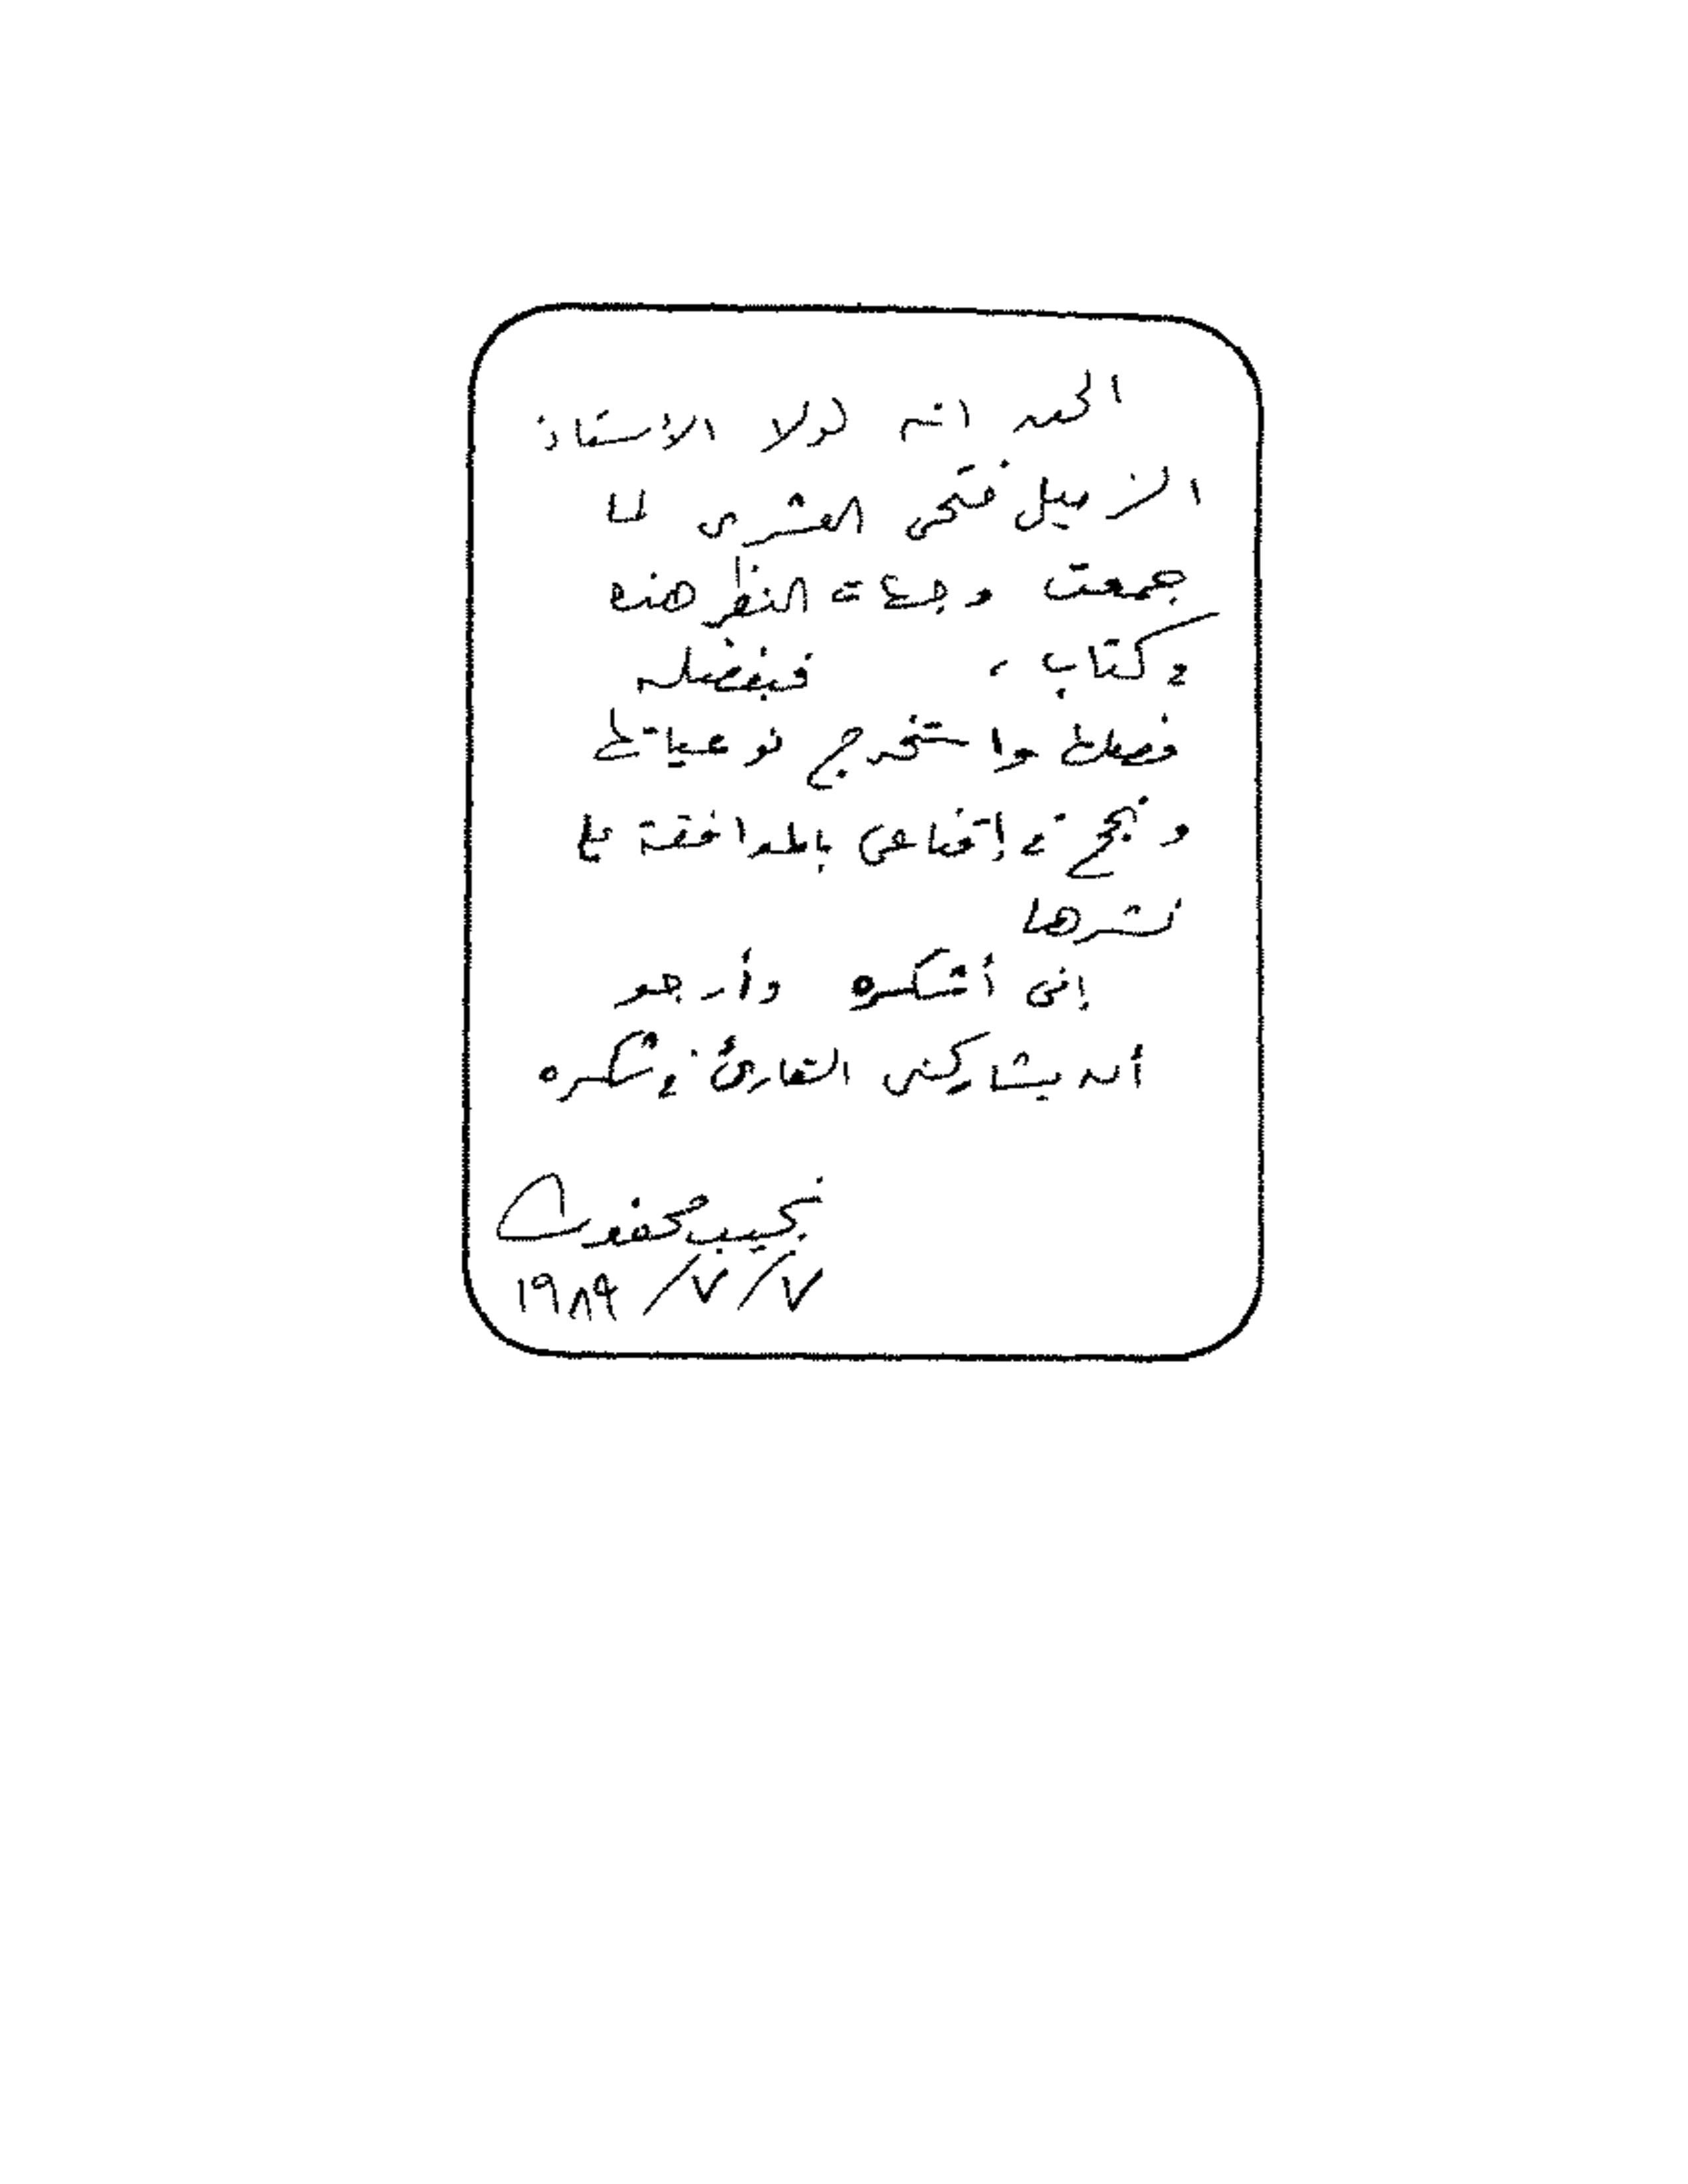 الحق أنه لولا الأستاذ
الزميل فتحى العشرى لما
جمعت وجهات النظر هذه
فى كتاب ، فبفضله
فصلها واستخرج نوعياتها
ونجح فى إقناعى بالموافقة على
نشرها
إنى أشكره وأرجو
أن يشاركنى القارئ فى شكره
نجيب محفوظ
٧/٧/١٩٨٩